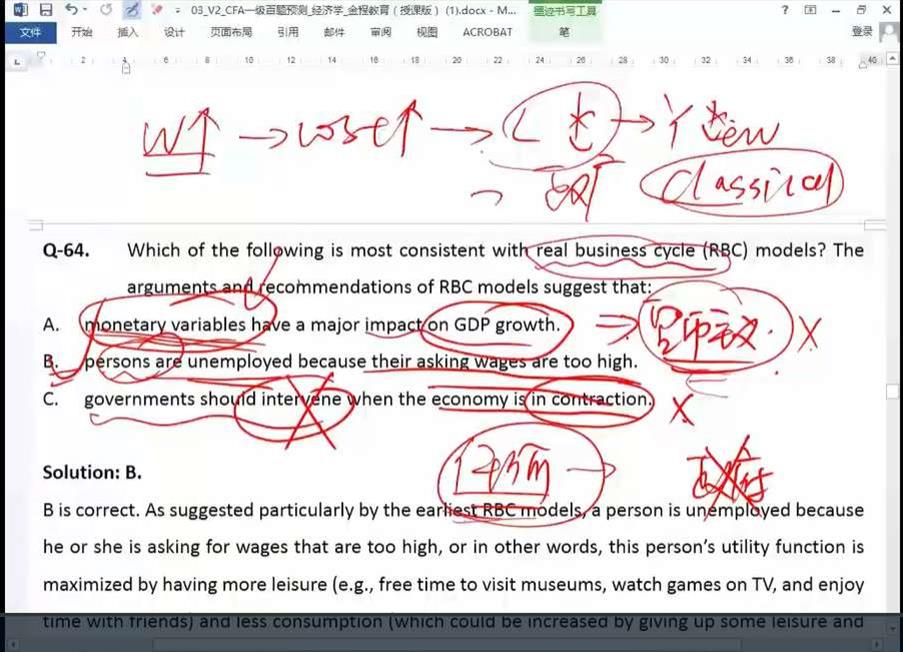 03_V2_CFA一级百题预测_经济学_金程教育（授课版）(1).docx - M...
墨迹书写工具
文件 开始 插入 设计 页面布局 引用 邮件 审阅 视图 ACROBAT 笔 登录
2 4 6 8 10 12 14 16 18 20 22 24 26 28 30 32 34 36 38 40
W↑ → cost↑ → L → View
classical
Q-64. Which of the following is most consistent with real business cycle (RBC) models? The
arguments and recommendations of RBC models suggest that:
A. monetary variables have a major impact on GDP growth. ⇒ 货币主义 X
B. persons are unemployed because their asking wages are too high.
C. governments should intervene when the economy is contraction. X
Solution: B.
B is correct. As suggested particularly by the earliest RBC models, a person is unemployed because
he or she is asking for wages that are too high, or in other words, this person's utility function is
maximized by having more leisure (e.g., free time to visit museums, watch games on TV, and enjoy
time with friends) and less consumption (which could be increased by giving up some leisure and